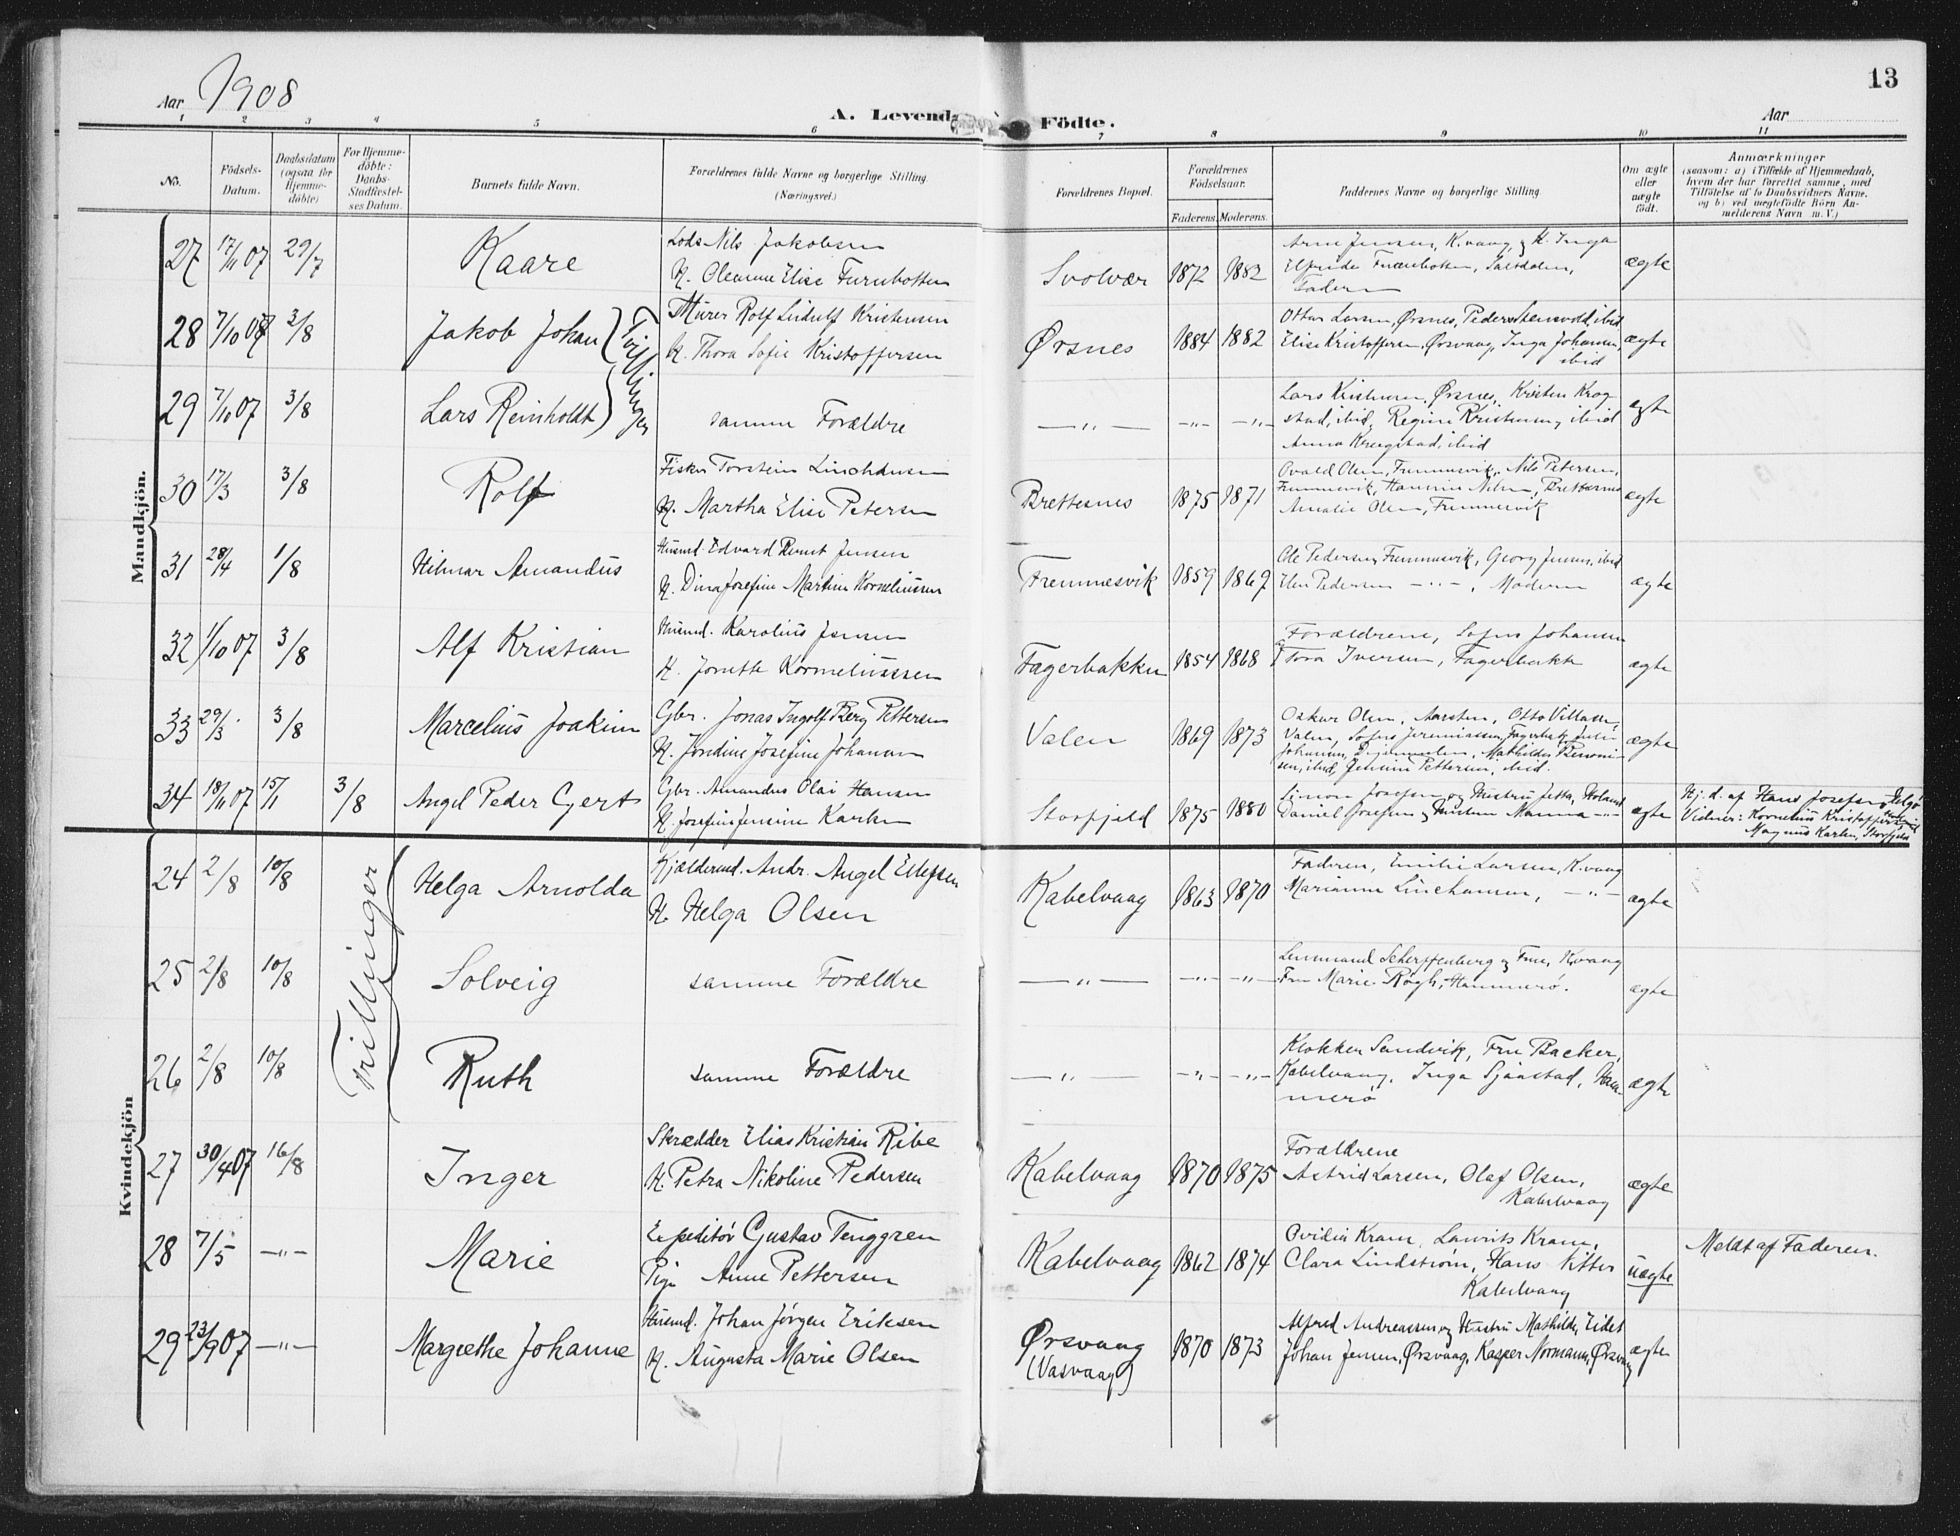 Aar 1908
A. Levende Födte.
13
Aar
1 2 3 4 5 6 7 8 9 10 11
No.
Födsels-Datum.
Daabsdatum (ogsaa for Hjemme-döbte)
For Hjemme-döbte: Daabs-Stadfæstelses Datum.
Barnets fulde Navn.
Forældrenes fulde Navne og borgerlige Stilling.
(Næringsvei.)
Forældrenes Bopæl.
Forældrenes Födselsaar.
Faderens. Moderens.
Faddernes Navne og borgerlige Stilling.
Om ægte eller uægte födt.
Anmærkninger
(saasom: a) i Tilfælde af Hjemmedaab,
hvem der har forrettet samme, med
Tilföielse af to Daabsvidners Navne.
og b) ved uægtefödte Börn An-
melderens Navn m. V.)
Mandkjön.
27 17/11 07 29/7 Kaare
Lods Nils Jakobsen
H. Oleanne Elise Furnbotten
Svolvær 1872 1882
Arne Jensen, K.vaag, og H. Inga
Elfrida Furnbotten, Saltdalen,
Faderen
ægte
28 7/10 07 3/8 Jakob Johan
Tvillinger
Murer Rolf Lidulf Kristensen
H. Thora Sofie Kristoffersen
Ørsnes 1884 1882
Ottar Larsen, Ørsnes, Peder Stensvold, ibid
Elise Kristoffersen, Ørsvaag, Inga Johansen,
ibid
ægte
29 7/10 07 3/8 Lars Reinholdt
samme Forældre
—„— —„— —„—
Lars Kristensen, Ørsnes, Kristen Krog
stad, ibid, Regine Kristensen, ibid
Anna Krogstad, ibid
ægte
30 17/3 3/8 Rolf
Fisker Torstein Linchausen
H. Martha Elise Petersen
Brettesnes 1875 1871
Ovald Olsen, Fremnesvik, Nils Petersen,
Fremnesvik, Hansine Nilsen, Brettesnes
Amalie Olsen, Fremnesvik
ægte
31 28/4 1/8 Hilmar Amandus
Husmd. Edvard Bernt Jensen
H. Dina Josefine Martine Korneliussen
Fremnesvik 1859 1869
Ole Pedersen, Fremnesvik, Georg Jensen, ibid
Elen Pedersen —„—, Moderen
ægte
32 1/10 07 3/8 Alf Kristian
Husmd. Karolius Jensen
H. Jonette Korneliussen
Fagerbakken 1854 1868
Forældrene, Sofus Johansen
Tora Iversen, Fagerbakk
ægte
33 29/3. 3/8 Marcelius Joakim
Gbr. Jonas Ingolf Berg Pettersen
H. Jondine Josefine Johansen
Valen 1869 1873
Oskar Olsen, Aarsten, Otto Villassen,
Valen, Sofus Jeremiassen, Fagerbak,
Johansen, Mathilde
sen, ibid, Jensine Pettersen, ibid.
ægte
34 18/11 07 15/1 3/8 Angel Peder Gjert
Gbr. Amandus Olai Hansen
H. Josefine Jensine Karlsen
Storfjeld 1875 1880
Simon Josefsen og Hustru Jetta, Holand
Daniel Josefsen og Hustru Manna —„—
ægte
Hj. d. af Hans Josefsen, Helgø
Vidner: Kornelius Kristoffersen, ibid
Magnus Karlsen, Storfjeld
Kvindekjön
Trillinger
24 2/8 10/8 Helga Arnolda
Kjældermd. Andr. Angel Ellefsen
H. Helga Olsen
Kabelvaag 1863 1870
Faderen, Emilie Larsen, K.vaag
Marianne Linchausen, —„—
ægte
25 2/8 10/8 Solveig
samme Forældre
—„— —„— —„—
Lensmand Scherffenberg og Frue, K.vaag
Fru Marie Røgh, Hammerø.
ægte
26 2/8 10/8 Ruth
samme Forældre
—„— —„— —„—
Klokker Sandvik, Fru Backer,
Kabelvaag, Inga Sjaastad, Ham-
merø
ægte
27 30/4 07 16/8 Inger
Skrædder Elias Kristian Ribe
H. Petra Nikoline Pedersen
Kabelvaag 1870 1875
Forældrene
Astrid Larsen, Olaf Olsen,
Kabelvaag
ægte
28 7/5 —„— Marie
Expeditør Gustav Tenggren
Pige Anne Pettersen
Kabelvaag 1862 1874
Ovidia Kram, Laurits Kram,
Clara Lindstrøm, Hans Vitter
Kabelvaag
uægte
Meldt af Faderen.
29 23/9 07 —„— Margrethe Johanne
Husmd. Johan Jørgen Eriksen
H. Augusta Marie Olsen
Ørsvaag
(Vasvaag)
1870 1873
Alfred Andreassen og Hustru Mathilde, Eidet
Johan Jensen, Ørsvaag, Kasper Normann, Ørsvaag
ægte